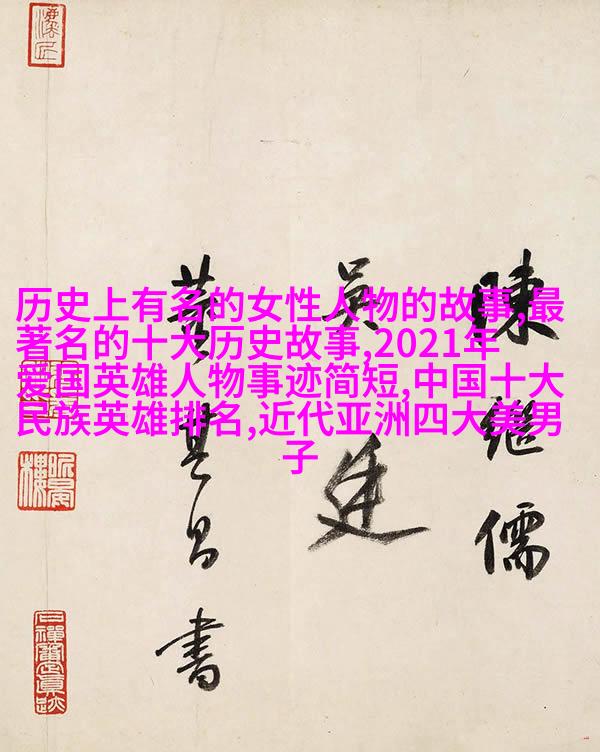 历史上有名的女性人物的故事,最
著名的十大历史故事,2021年
爱国英雄人物事迹简短,中国十大
民族英雄排名,近代亚洲四大美男
子
陳繼儒
吳廷
董其昌書